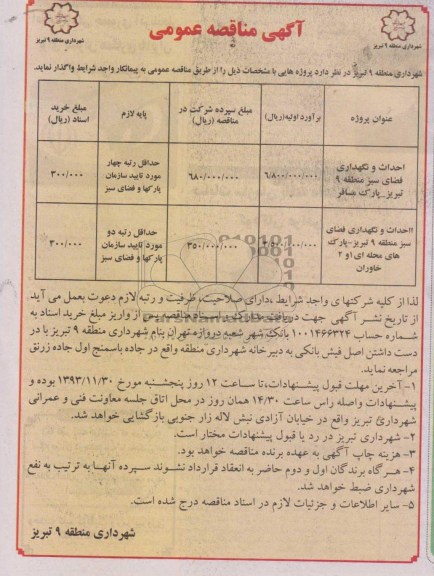 شهرداری منطقه ۹ تبریز
آگهی مناقصه عمومی
شهرداری منطقه ۹ تبریز
شهرداری منطقه ۹ تبریز در نظر دارد پروژه هایی با مشخصات ذیل را از طریق مناقصه عمومی به پیمانکار واجد شرایط واگذار نماید.
عنوان پروژه
برآورد اولیه(ریال)
مبلغ سپرده شرکت در مناقصه (ریال)
پایه لازم
مبلغ خرید اسناد (ریال)
احداث و نگهداری فضای سبز منطقه ۹ تبریز_پارک مسافر
۶/۸۰۰/۰۰۰/۰۰۰
۶۸۰/۰۰۰/۰۰۰
حداقل رتبه چهار مورد تایید سازمان پارکها و فضای سبز
۳۰۰/۰۰۰
احداث و نگهداری فضای سبز منطقه ۹ تبریز-پارک های محله ای ۱و ۲ خاوران
۳/۵۰۰/۰۰۰/۰۰۰
۳۵۰/۰۰۰/۰۰۰
حداقل رتبه دو مورد تایید سازمان پارکها و فضای سبز
۳۰۰/۰۰۰
لذا از کلیه شرکتهای واجد شرایط ،دارای صلاحیت، ظرفیت و رتبه لازم دعوت بعمل می آید.
از تاریخ نشر آگهی جهت دریافت مدارک و اسناد مناقصه پس از واریز مبلغ خرید اسناد به
شماره حساب ۱۰۰۱۴۶۶۳۲۴ بانک شهر شعبه دروازه تهران بنام شهرداری منطقه ۹ تبریز با در
دست داشتن اصل فیش بانکی به دبیرخانه شهرداری منطقه واقع در جاده باسمنج اول جاده زرنق
مراجعه نماید.
۱-آخرین مهلت قبول پیشنهادات،تا ساعت ۱۲ روز پنجشنبه مورخ ۱۳۹۳/۱۱/۳۰ بوده و
پیشنهادات واصله راس ساعت ۱۴/۳۰ همان روز در محل اتاق جلسه معاونت فنی و عمرانی
شهرداری تبریز واقع در خیابان آزادی نبش لاله زار جنوبی بازگشایی خواهد شد.
۲- شهرداری تبریز در رد یا قبول پیشنهادات مختار است.
۳- هزینه چاپ آگهی به عهده برنده مناقصه خواهد بود.
۴- هرگاه برندگان اول و دوم حاضر به انعقاد قرارداد نشوند سپرده آنها به ترتیب به نفع
شهرداری ضبط خواهد شد.
۵- سایر اطلاعات و جزئیات لازم در اسناد مناقصه درج شده است.
شهرداری منطقه ۹ تبریز